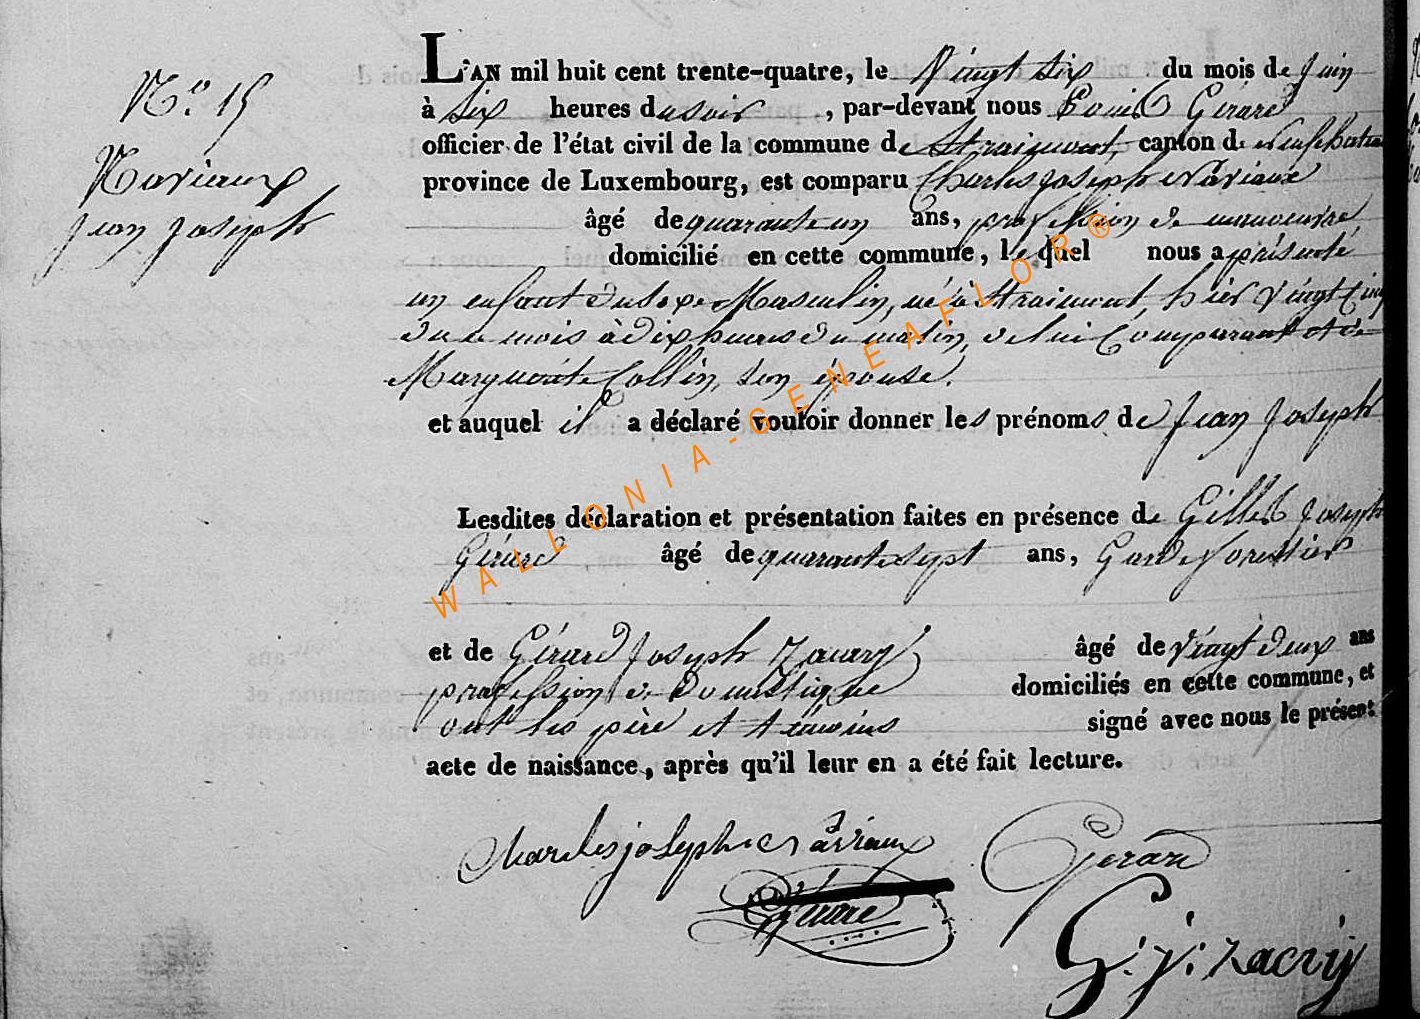 N.º 15
Naviaux
Jean Joseph
L'AN mil huit cent trente-quatre, le Vingt six du mois de Juin
à six heures du soir, par-devant nous Louis Gérard
officier de l'état civil de la commune de Straimont, canton de neufchateau
province de Luxembourg, est comparu Charles Joseph Naviaux
âgé de quarante un ans, profession de manoeuvre
domicilié en cette commune, lequel nous a présenté
un enfant du sexe Masculin, né à Straimont, hier vingt cinq
du mois à dix heures du matin, de lui Comparant et de
Marguerite Collin, son épouse.
et auquel il a déclaré vouloir donner les prénoms de Jean Joseph
Lesdites déclaration et présentation faites en présence de Gilles Joseph
Gérard âgé de quarante sept ans, Garde forestier
et de Gérard Joseph Zacery âgé de vingt deux ans
profession de Domestique domiciliés en cette commune, et
ont les père et témoins signé avec nous le présent
acte de naissance, après qu'il leur en a été fait lecture.
Charles joseph Naviaux
Gerard
Gérard
G: j: Zacery
WALLONIA-GENEAFLOR®